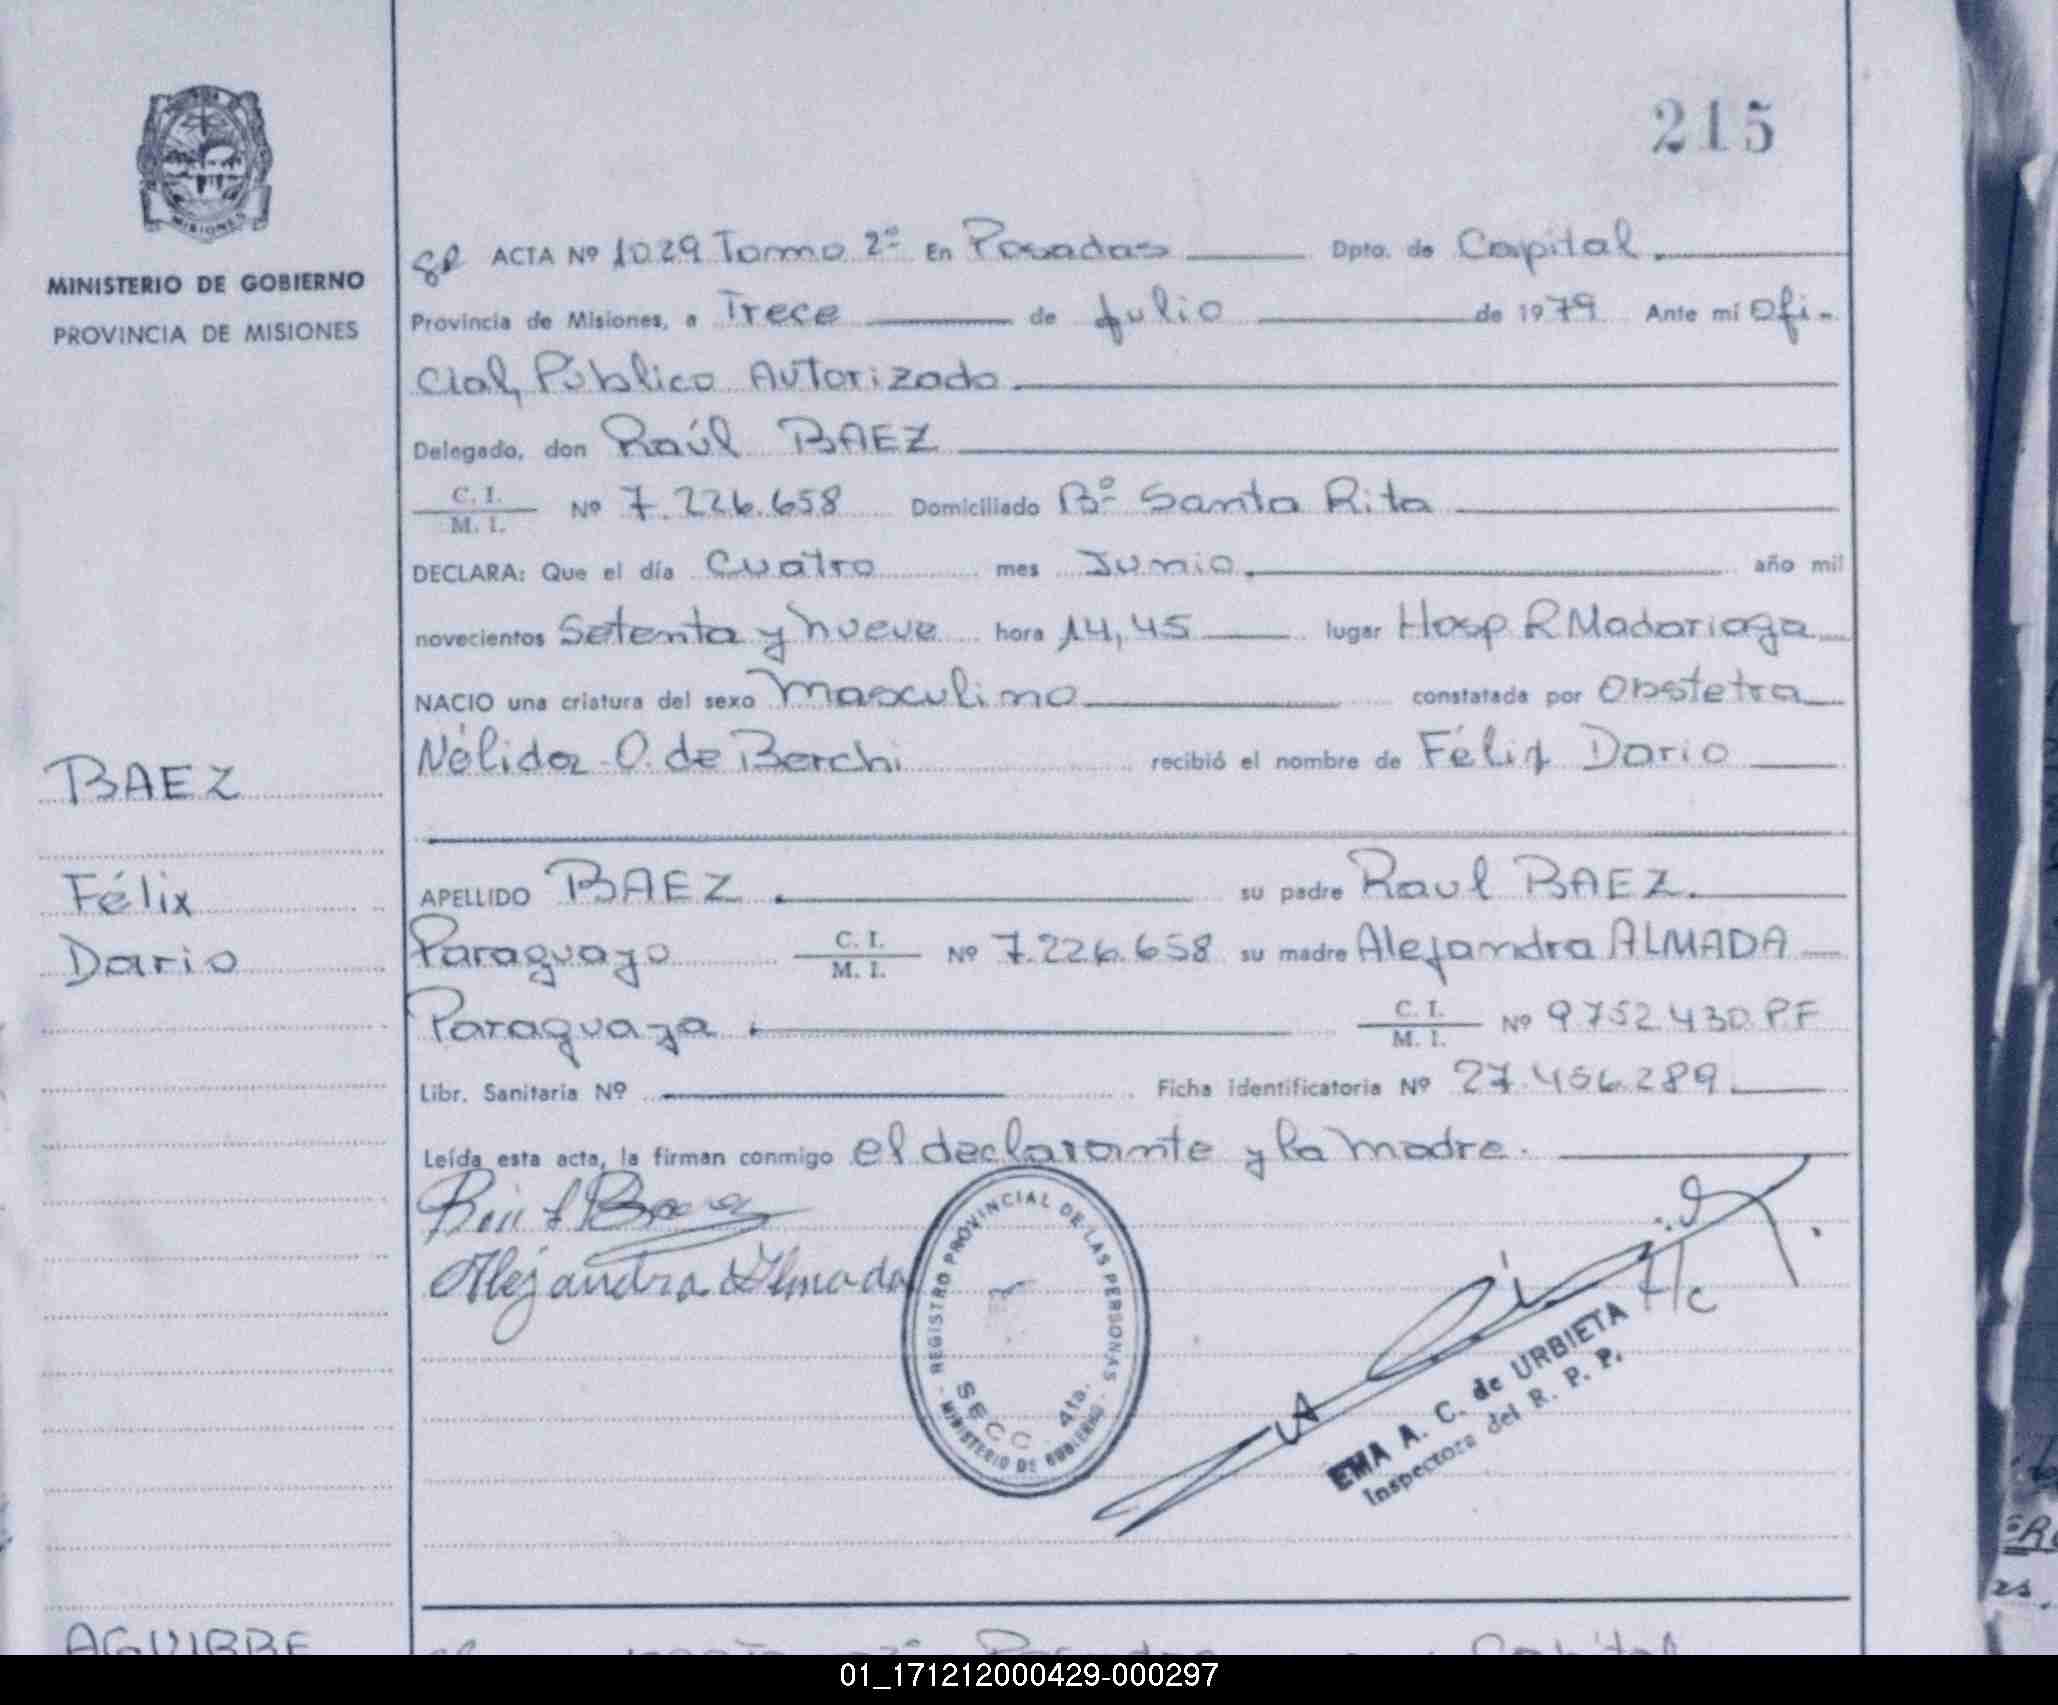 215
MISIONES
MINISTERIO DE GOBIERNO
PROVINCIA DE MISIONES
ACTA Nº 1029 Tomo 2º En Posadas Dpto. de Capital.
Provincia de Misiones, a Trece de Julio de 1979 Ante mí Ofi-
cial Público Autorizado.
Delegado, don Raúl BAEZ
C. I.
M. I. Nº 7.226.658 Domiciliado Bº Santa Rita
DECLARA: Que el día Cuatro mes Junio. año mil
novecientos Setenta y nueve hora 14,45 lugar Hosp R Madariaga
NACIO una criatura del sexo Masculino constatada por Obstetra
Nélida O. de Berchi recibió el nombre de Félix Dario
BAEZ
Félix
Dario
APELLIDO BAEZ. su padre Raul BAEZ.
Paraguayo C. I.
M. I. Nº 7.226.658 su madre Alejandra ALMADA
Paraguaya. C. I.
M. I. Nº 9752.430 P.F
Libr. Sanitaria Nº Ficha identificatoria Nº 27.456.289
Leída esta acta, la firman conmigo el declarante y la madre.
Alejandra Almada
REGISTRO PROVINCIAL DE LAS PERSONAS
SECC. 4ta.
MINISTERIO DE GOBIERNO
EMA A. C. de URBIETA
Inspectora del R. P. P.
AGUIRRE
01_171212000429-000297